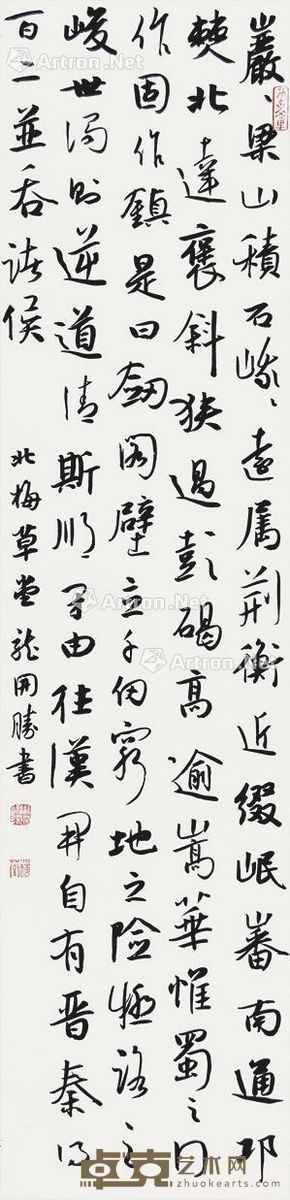 巖〻梁山積石峨〻遠属荆衡近缀岷嶓南通邛
僰北達褒斜狭過彭碣高逾嵩華惟蜀之门
作固作鎮是曰劒阁壁立千仞窮地之险極路之
峻世濁则逆道清斯順闭由往漢開自有晋秦得
百二並吞諸侯
北梅草堂龍開勝書
Artron.Net
卓克艺术网
www.zhuokearts.com